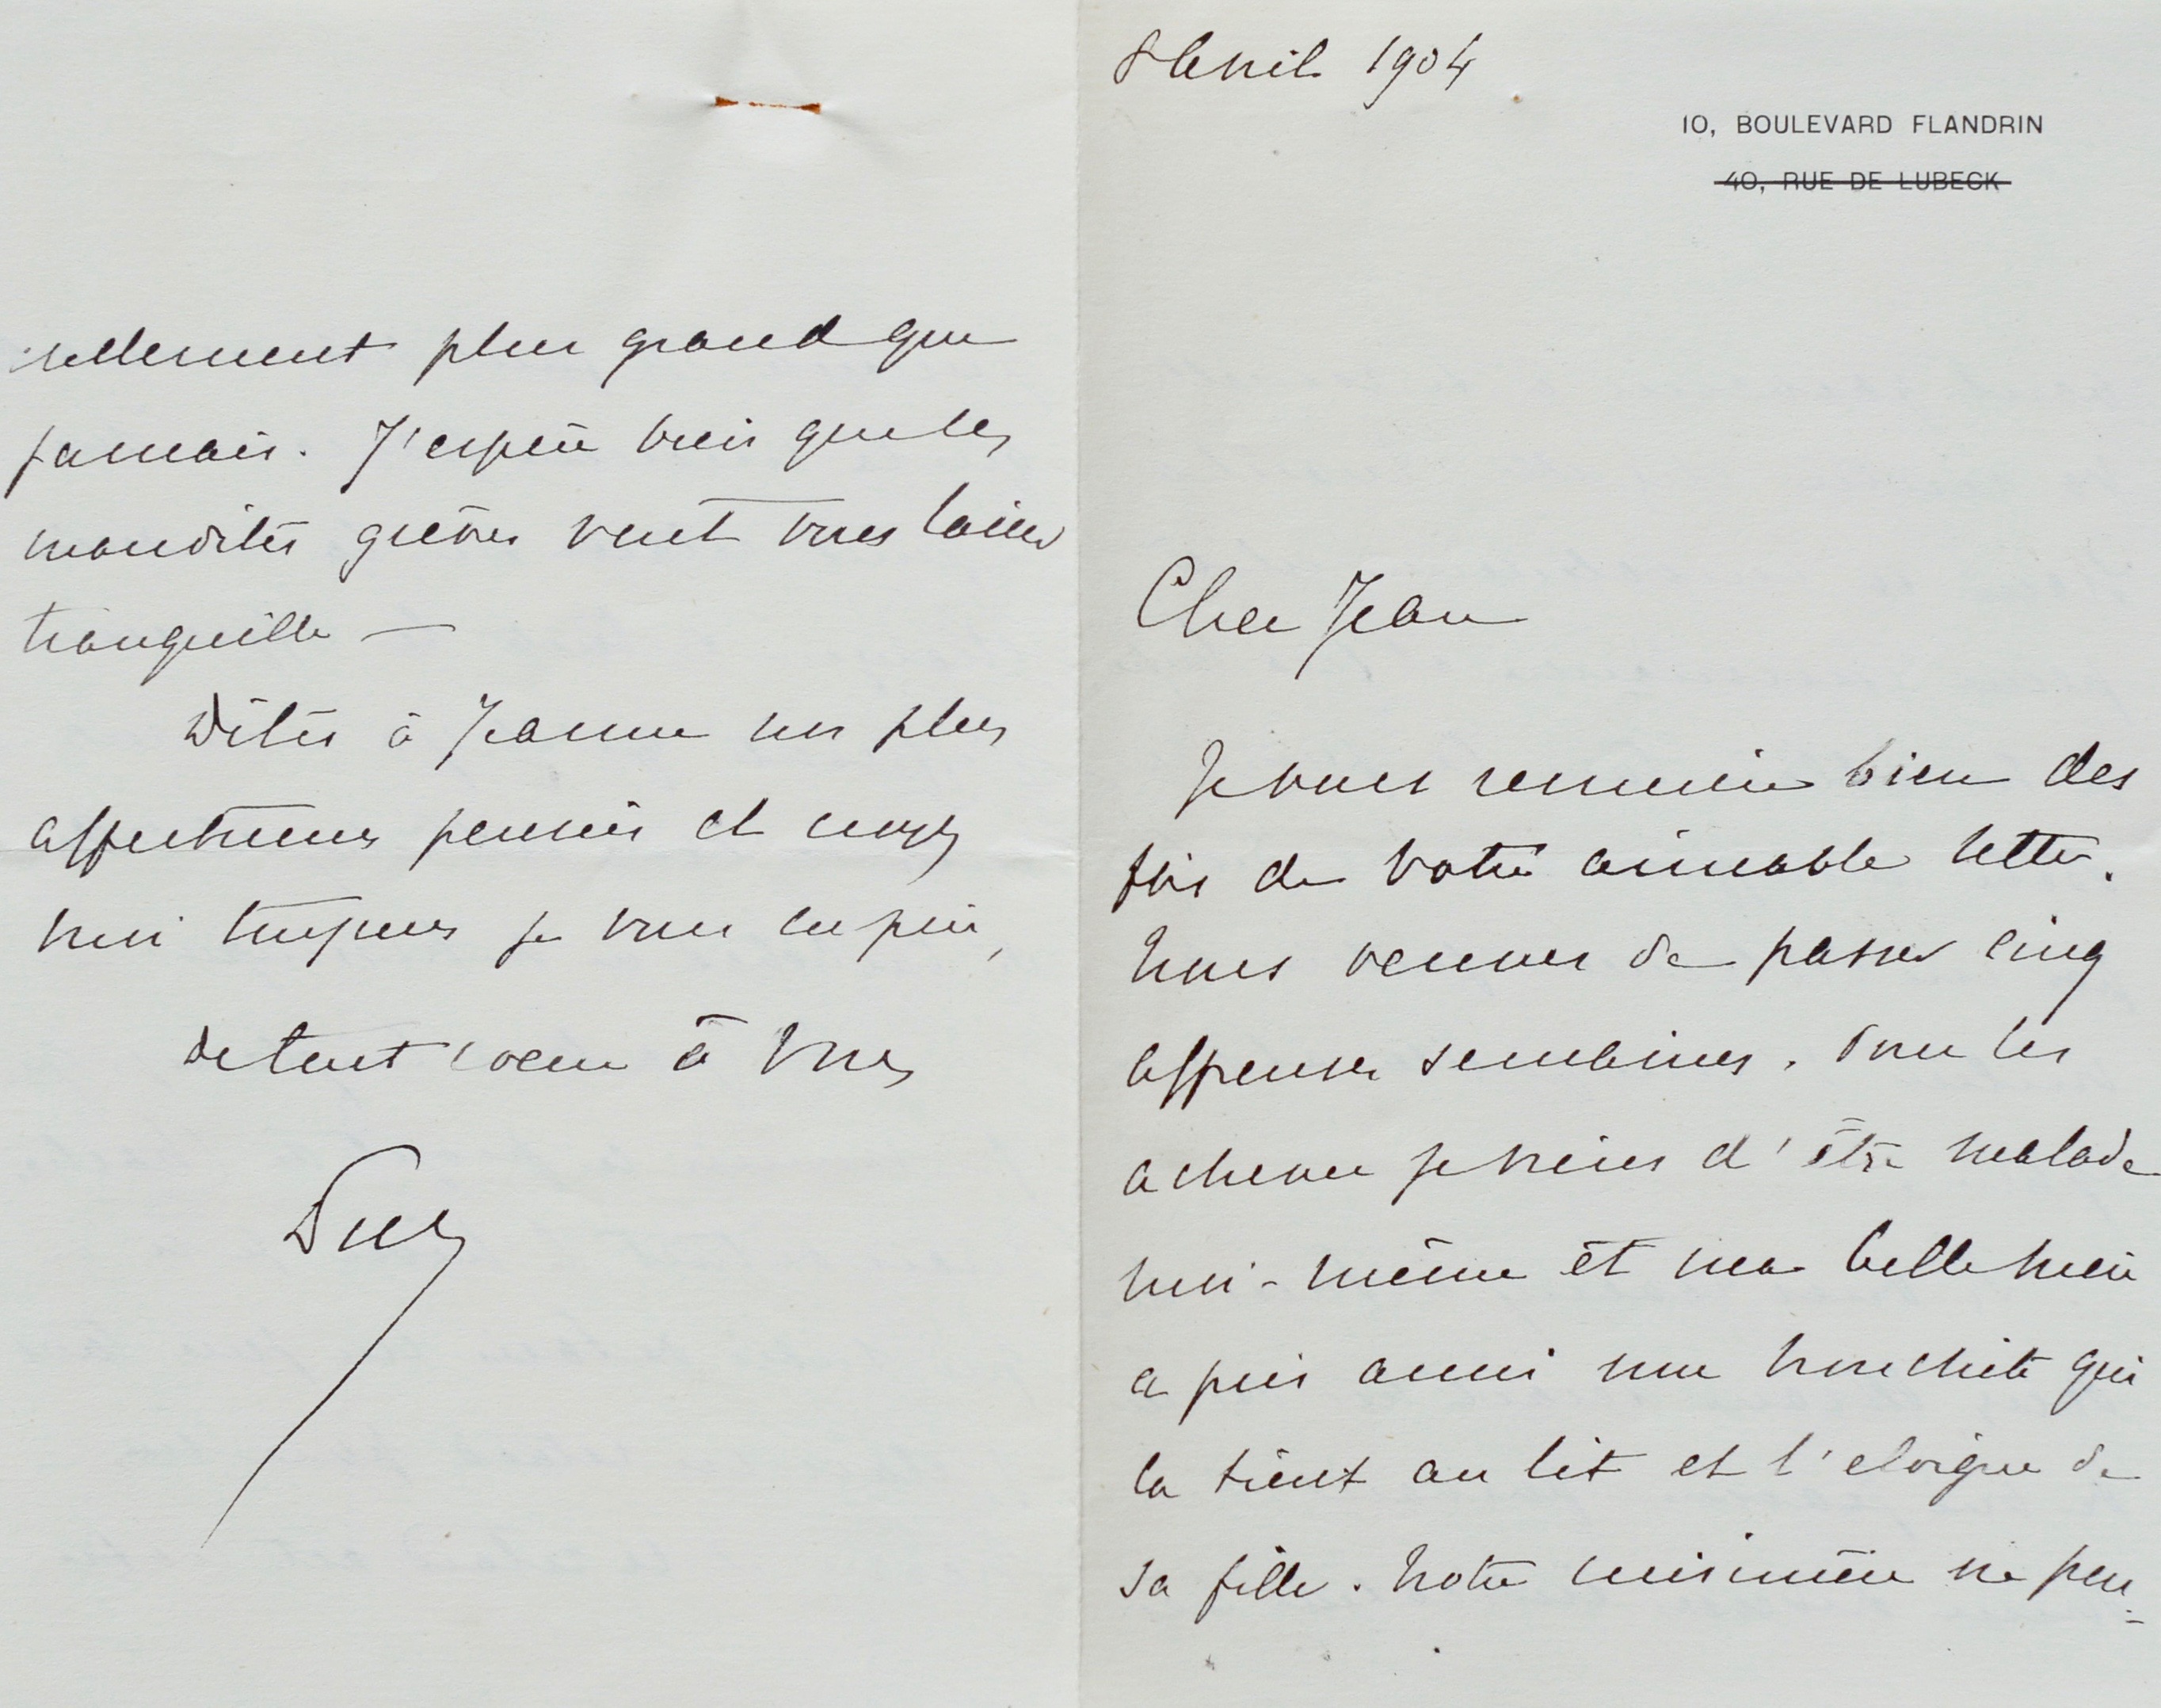 8 Avril 1904
10, BOULEVARD FLANDRIN
40, RUE DE LUBECK
Cher Jean
Je vous remercie bien des
fois de votre aimable lettre.
Nous venons de passer cinq
affreuses semaines. Pour les
achever je viens d'être malade
moi-même et ma belle mère
a pris aussi une bronchite qui
la tient au lit et l'eloigne de
sa fille. Notre cuisinière ne pou-
rellement plus grand que
jamais. J'espère bien que les
maudites grèves vont vous laisser
tranquille —
Dites à Jeanne nos plus
affectueuses pensées et croyez
moi toujours je vous en prie,
de tout coeur à vous